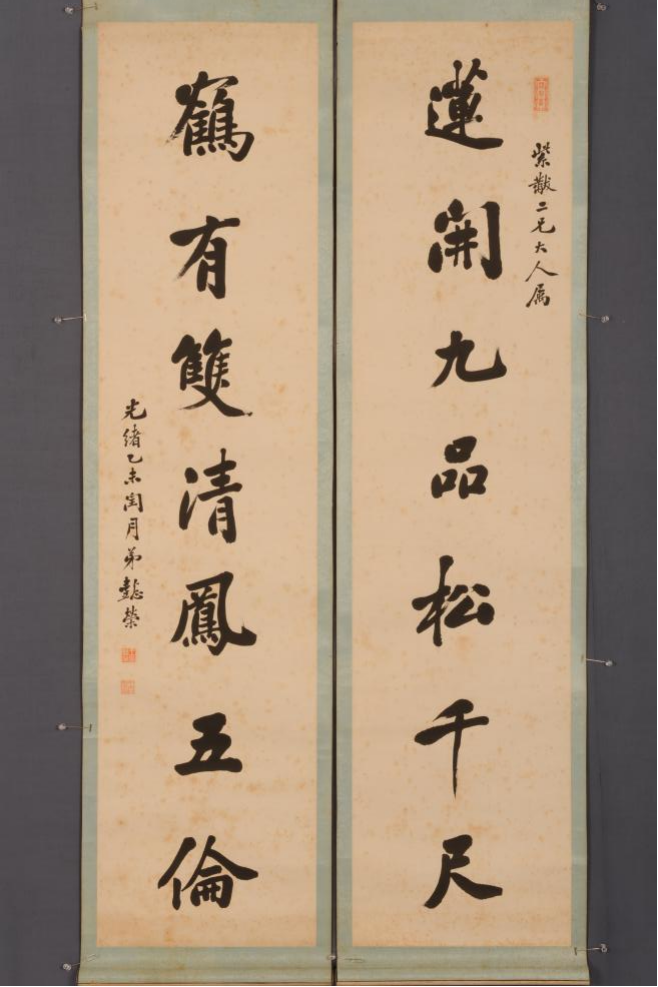 紫黻二兄大人屬
蓮開九品松千尺
鶴有雙清鳳五倫
光緒乙未閏月弟懿榮